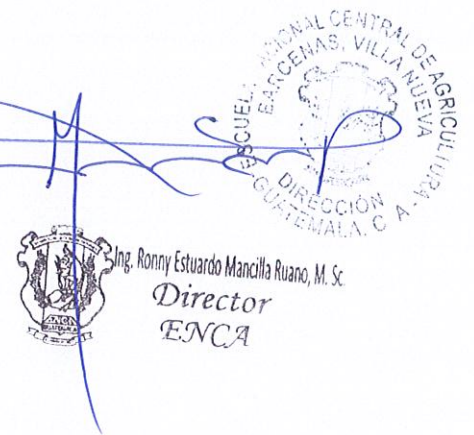 ESCUELA NACIONAL CENTRAL DE AGRICULTURA
BARCENAS, VILLA NUEVA
DIRECCIÓN
GUATEMALA, C. A.
Ing. Ronny Estuardo Mancilla Ruano, M. Sc.
Director
ENCA
ENCA